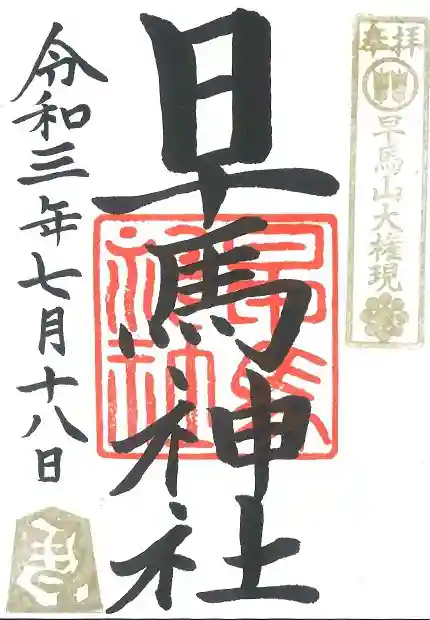 奉拝
早馬山大権現
早馬神社
早馬神社
令和三年七月十八日